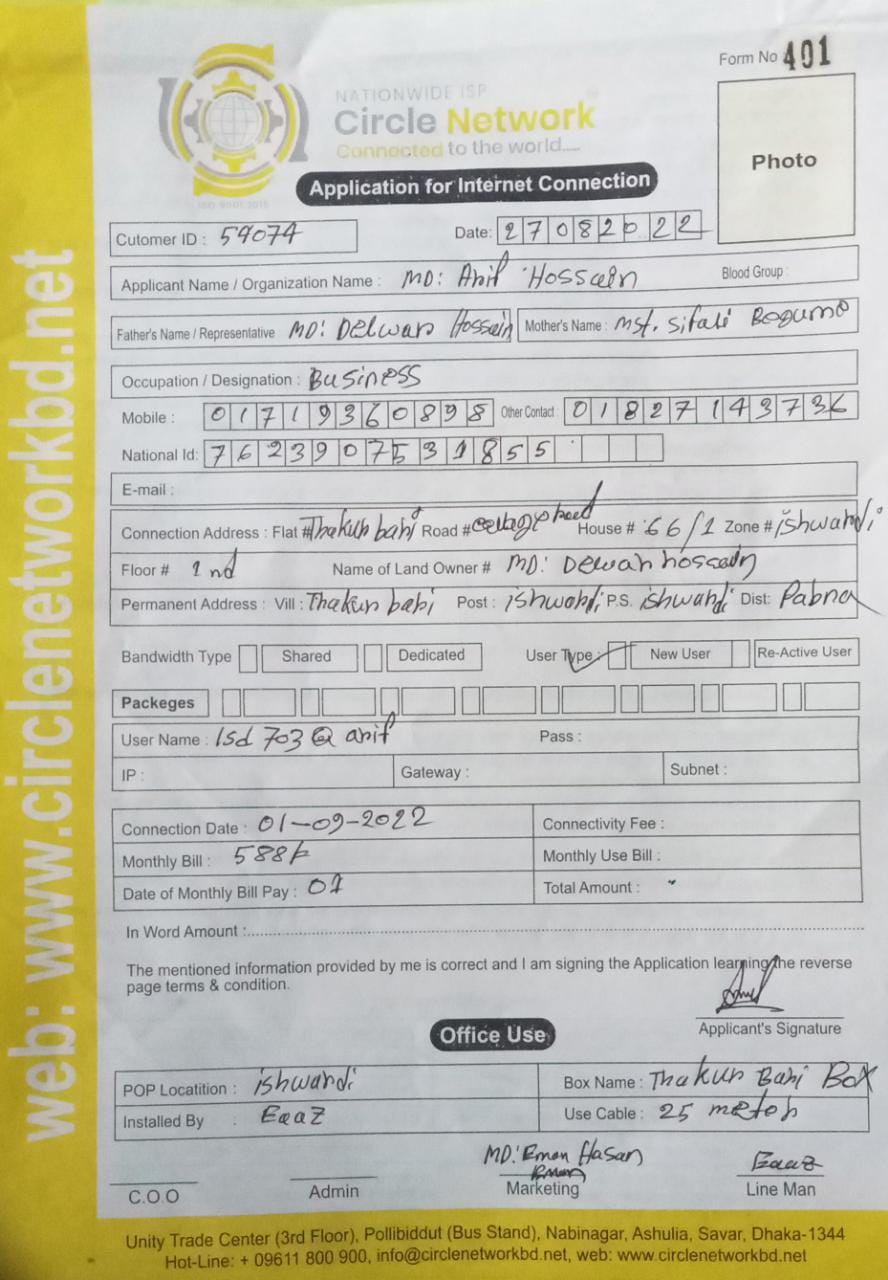 Form No 401
NATIONWIDE ISP
Circle Network
Connected to the world.....
ISO 9001:2015
Photo
Application for Internet Connection
Cutomer ID : 59074
Date: 27082022
Applicant Name / Organization Name : MD: Arif Hossain
Blood Group :
Father's Name / Representative MD: Delwar Hossain
Mother's Name : Mst. Sifali
Occupation / Designation : Business
Mobile : 01719360898 Other Contact : 01827143736
National Id: 7623907531855
E-mail :
Connection Address : Flat # Thakur bari Road # House # 66/1 Zone # ishwardi
Floor # 2nd Name of Land Owner # MD: Delwar hossain
Permanent Address : Vill : Thakur bari Post : ishwardi P.S. ishwardi Dist: Pabna
Bandwidth Type Shared Dedicated User Type: New User Re-Active User
Packeges
User Name : Isd 703 @ arif Pass :
IP : Gateway : Subnet :
Connection Date : 01-09-2022 Connectivity Fee :
Monthly Bill : 588 Monthly Use Bill :
Date of Monthly Bill Pay : 01 Total Amount :
In Word Amount :
The mentioned information provided by me is correct and I am signing the Application learning the reverse
page terms & condition.
Applicant's Signature
Office Use
POP Locatition : ishwardi Box Name : Thakur Bari Box
Installed By : Eaaz Use Cable : 25 meter
MD: Emon Hasan
Emon Eaaz
C.O.O Admin Marketing Line Man
Unity Trade Center (3rd Floor), Pollibiddut (Bus Stand), Nabinagar, Ashulia, Savar, Dhaka-1344
Hot-Line: + 09611 800 900, info@circlenetworkbd.net, web: www.circlenetworkbd.net
web: www.circlenetworkbd.net